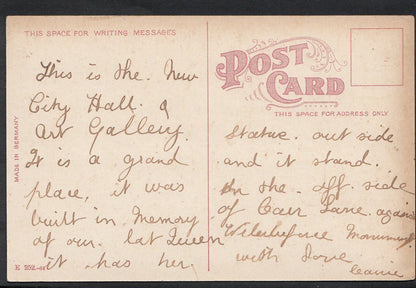 THIS SPACE FOR WRITING MESSAGES
This is the New
City Hall &
Art Gallery.
It is a grand
place, it was
built in Memory
of our lat Queen
it has her
MADE IN GERMANY
E 252.
POST
CARD
THIS SPACE FOR ADDRESS ONLY
Statue out side
and it stand.
on the off side
of Carr Lane again
Wilberforce Monument
with Love